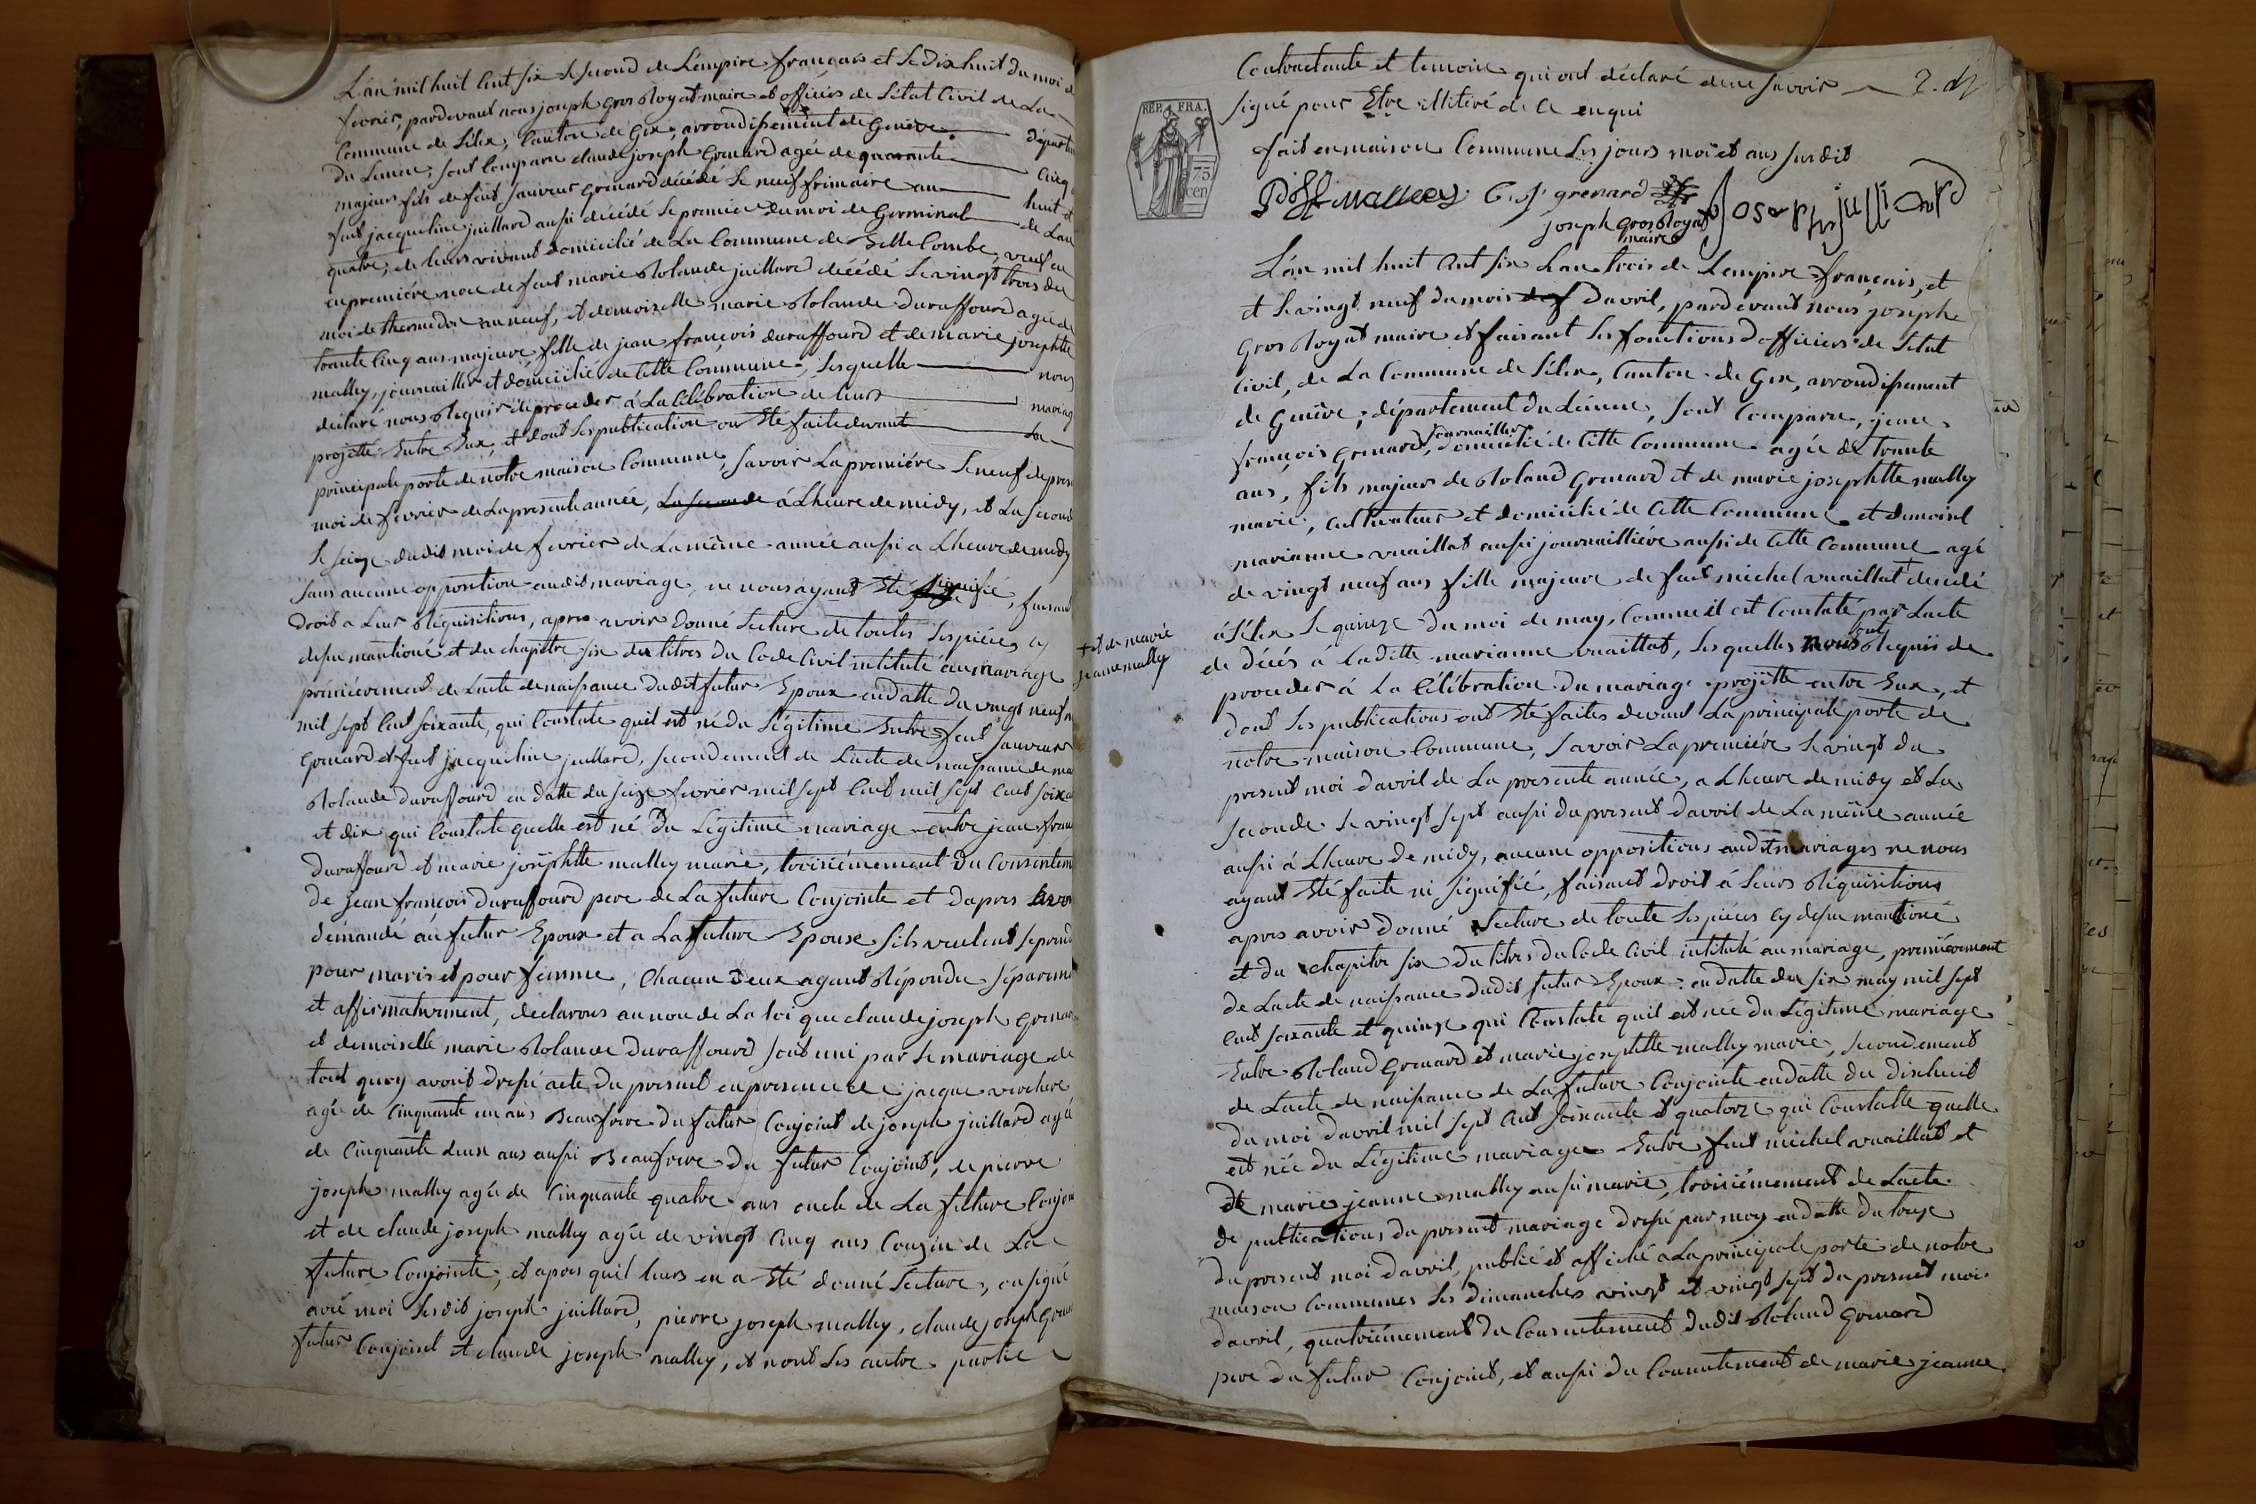 L'an mil huit cent six le second de L'empire français et le dix huit du moi de
fevrier, pardevant nous joseph gros Royat maire et officier de l'etat Civil de La
Commune de Lélex, Canton de Gex, arrondissement de Genève départem
du Leman, sont Comparu claude joseph Grenard agée de quarante cinq a
majeur fils de feut sauveur grenard décédé le neuf frimaire an huit et
feut jacqueline juillard aussi décédé le premier du moi de Germinal de Lan
quatre, de leurs vivant domicilié de La Commune de belle Combe, veuf en
en première noce de feut marie Rolande juillard décédé le vingt trois du
moi de thermidor an neuf, et demoizelle marie Rolande duraffourd agée de
trante Cinq ans majeure fille de jean françois duraffourd et de marie josephtte
malley, journaillier et domicilié de cette Commune, Lesquelle nous
déclaré nous Requir de proceder á La Célébration de leurs mariag
projette Entre Eux, et dont Les publication on Eté faite devant La
principale porte de notre maison Commune, savoir La première le neuf de present
moi de fevrier de La presente année, La seconde á Lheure de midy, et La second
le seize dudit moi de fevrier de La même année aussi a Lheure de midy
sans aucune opposition audit mariage, ne nous ayant Eté signifié, faisant
droit a Leur Réquisitions, apres avoir donné Lecture de toutes Les pièces cy
dessu mantioné et du chapittre six des titres du Code Civil intitulé du mariage
prémièrement de Lacte de naissance dudit futur Epoux en datte du vingt neuf
mil sept Cent soixante, qui Constate quil est né du Légitime Entre feut Sauveur
Grenard et feut jacqueline juillard, secondement de Lacte de naissance de ma
Rolande duraffourd en datte du seize fevrier mil sept Cent mil sept cent soixa
et dix qui Constate quelle est né du Légitime mariage entre jean fran
duraffourd et marie josephtte malley marié, troisièmement du Consentem
de jean françois duraffourd pere de La future Conjointe et dapres avoir
démandé au futur Epoux et a La future Epouse sils veulent se prend
pour maris et pour fémme, chacun deux ayant Répondu séparem
et affirmativement, declarons au non de La loi que claude joseph grenard
et demoiselle marie Rolande duraffourd sont uni par le mariage de
tout quoy avont dressé acte du present en presence de jacque
agée de Cinquante un ans Beaufrere du futur Conjoint de joseph juillard agée
de Cinquante deux ans aussi Beaufrere du futur Conjoint, de pierre
joseph malley agée de Cinquante quatre ans oncle de La future Conjoin
et de claude joseph malley agée de vingt Cinq ans Couzin de La
future Conjointe, et apres quil leurs en a Eté donné Lecture, on signé
avec moi Lesdit joseph juillard, pierre joseph malley, claude joseph Gren
futur Conjoint et claude joseph malley, et nont Les autre partie
Contractante et temoin qui ont déclaré de ne savoir
signé pour Etre illitiré de ce enqui
fait en maison Commune Les jours moi et ans susdit
REP. FRA.
75
cen
malley C. j. grenard
joseph gros Royat joseph juilliard
maire
L'an mil huit cent six Lan trois de Lempire français, et
et le vingt neuf du mois davril, pardevant nous joseph
Gros Royat maire et faisant Les fonctions dofficier de Letat
Civil, de La Commune de Lélex, Canton de Gex, arrondissement
de Genève, département du Léman, sont Comparu, jean
françois Grenard, journaillier, domicilié de Cette Commune agée de trante
ans, fils majeur de Roland Grenard et de marie josephtte malley
marié, cultivateur et domicilié de Cette Commune et demoisel
marianne vuaillat aussi journaillière aussi de Cette Commune agé
de vingt neuf ans fille majeure de feut michel vuaillat + décédé
+ et de marie
jeanne malley
á Lélex le quinze du moi de may, Comme il est Constaté par Lacte
de décés á Laditte marianne vuaillat, Lesquelles nous ont Requis de
proceder á La Célébration du mariage projétte entre Eux, et
dont Les publications ont Eté faites devant La principale porte de
notre maison Commune, savoir La première le vingt du
present moi davril de La presente année, a Lheure de midy et La
seconde le vingt sept aussi du present davril de La même année
aussi á Lheure de midy, aucune oppositions audit mariages ne nous
ayant Eté faite ni signifié, faisant droit á Leurs Réquisitions
apres avoir donné Lecture de toute Les pièces cy dessu mantioné
et du chapitre six du titre du Code Civil intitulé du mariage, premièrement
de Lacte de naissance dudit futur Epoux en datte du six may mil sept
cent soixante et quinze qui Constate quil est née du Légitime mariage
Entre Roland Grenard et marie josephtte malley marié, secondement
de Lacte de naissance de La future Conjointe en datte du dix huit
du moi davril mil sept cent soixante et quatorze qui Constatte quelle
est née du Légitime mariage Entre feut michel vuaillat et
de marie jeanne malley aussi marié, troisièmement de Lacte
de publications du present mariage dressé par moy en datte du
du present moi davril, publié et affiché a La principale porte de notre
maison Communes Les dimanches vingt et vingt sept du present moi
davril, quatrièmement du Consentement dudit Roland Grenard
pere du futur Conjoint, et aussi du Consentement de marie jeanne